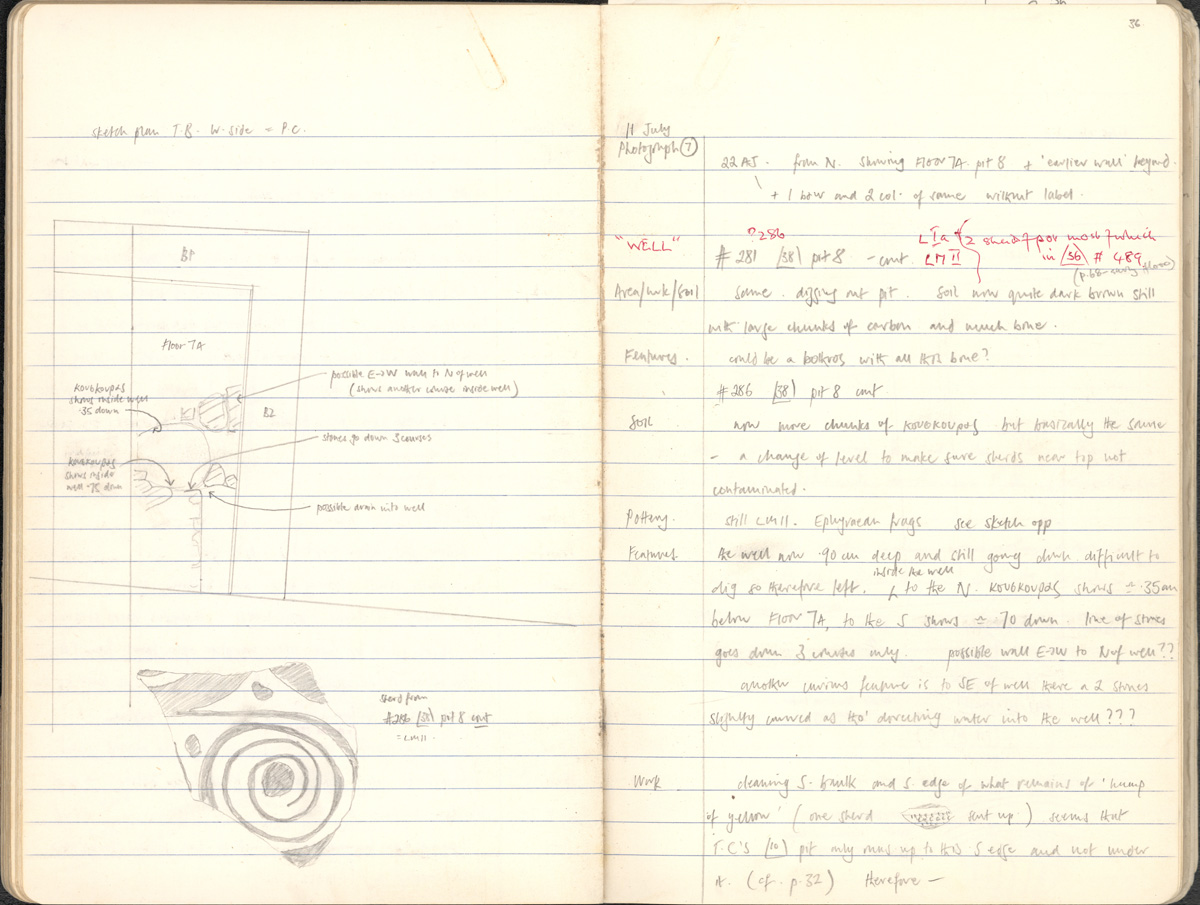 sketch plan T.B. W. side = P.C.
B1
Floor 7A
possible E→W wall to N of well
(shows another course inside well)
κουσκουρας
shows inside well
.35 down
B2
stones go down 3 courses
κουσκουρας
shows inside
well .75 down
possible drain into well
sherd from
#286 [38] pit 8 cont
= LMII.
36
11 July
Photograph 7
22 AS. from N. showing Floor 7A pit 8 + 'earlier wall' beyond.
+ 1 b&w and 2 col. of same without label.
"WELL"
?286
LIa 2 sherds for most of which
LMII in [56] # 489
# 281 [38] pit 8 - cont.
Area/wk/soil same. digging out pit. Soil now quite dark brown still
with large chunks of carbon and much bone.
Features. could be a bothros with all this bone?
#286 [38] pit 8 cont
Soil now more chunks of κουσκουρας but basically the same
- a change of level to make sure sherds near top not
contaminated.
Pottery. still LMII. Ephyraean frags see sketch opp
Features. the well now .90 cm deep and still going down difficult to
dig so therefore left. inside the well to the N. κουσκουρας shows ≏ .35cm
below Floor 7A, to the S shows ≏ 70 down. line of stones
goes down 3 courses only. possible wall E→W to N of well??
another curious feature is to SE of well there a 2 stones
slightly curved as tho' directing water into the well???
Work cleaning S. baulk and S. edge of what remains of 'hump
of yellow' (one sherd sent up) seems that
T.C's [10] pit only runs up to this S edge and not under
it. (cf. p.32) therefore —